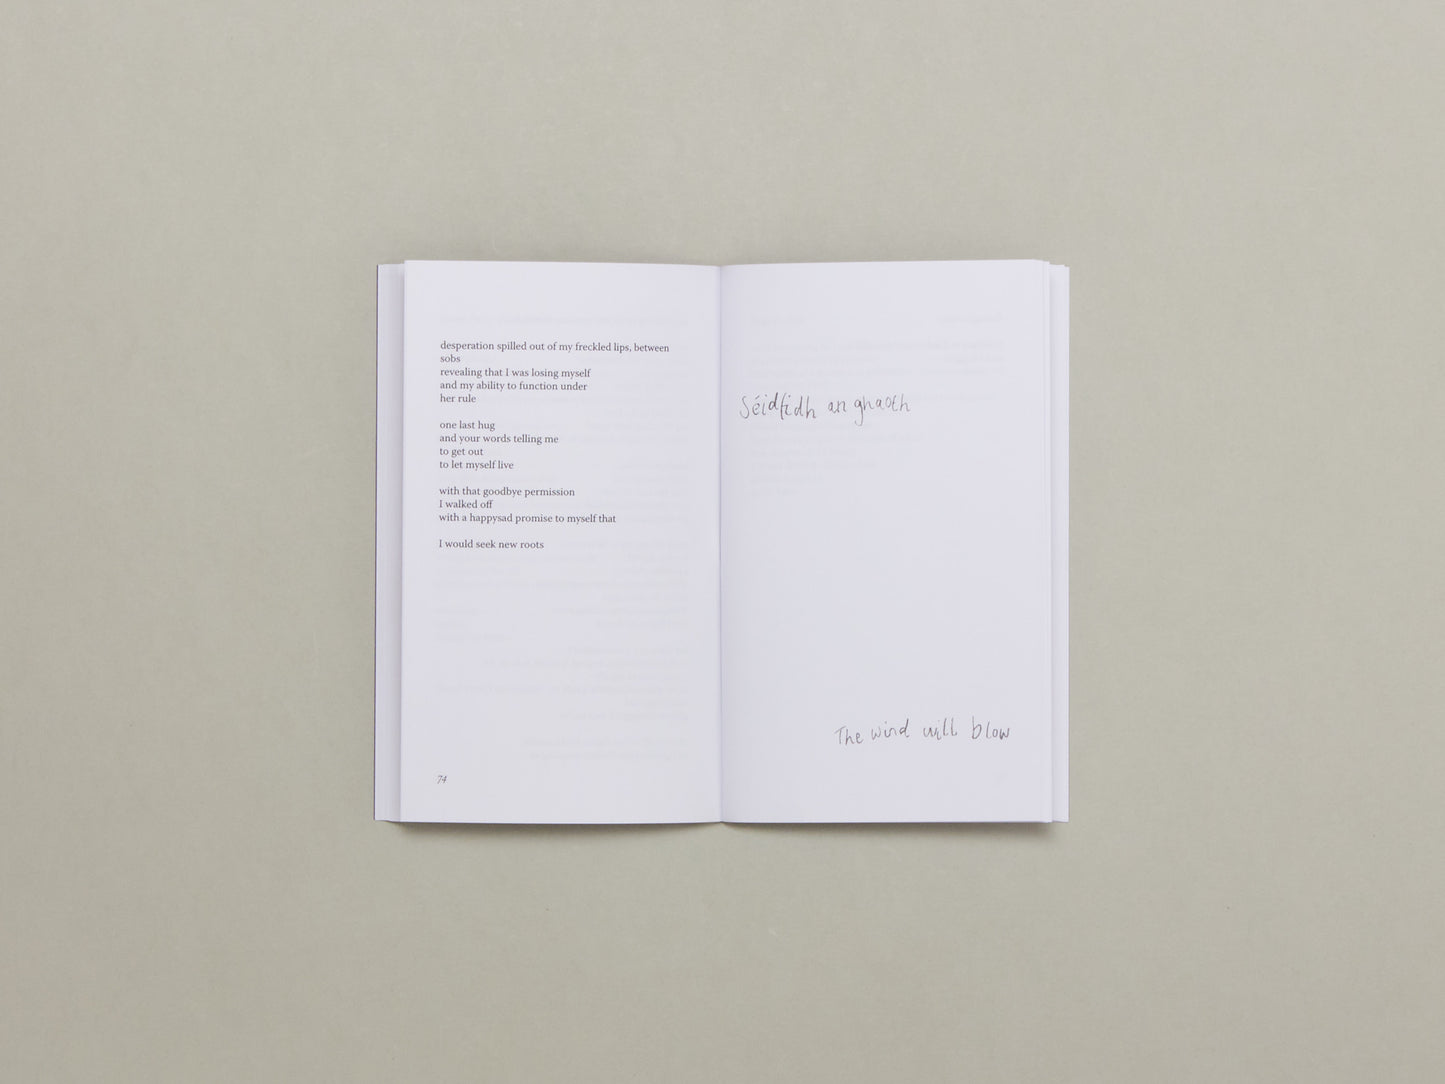 desperation spilled out of my freckled lips, between
sobs
revealing that I was losing myself
and my ability to function under
her rule
one last hug
and your words telling me
to get out
to let myself live
with that goodbye permission
I walked off
with a happysad promise to myself that
I would seek new roots
74
Séidfidh an ghaoth
The wind will blow